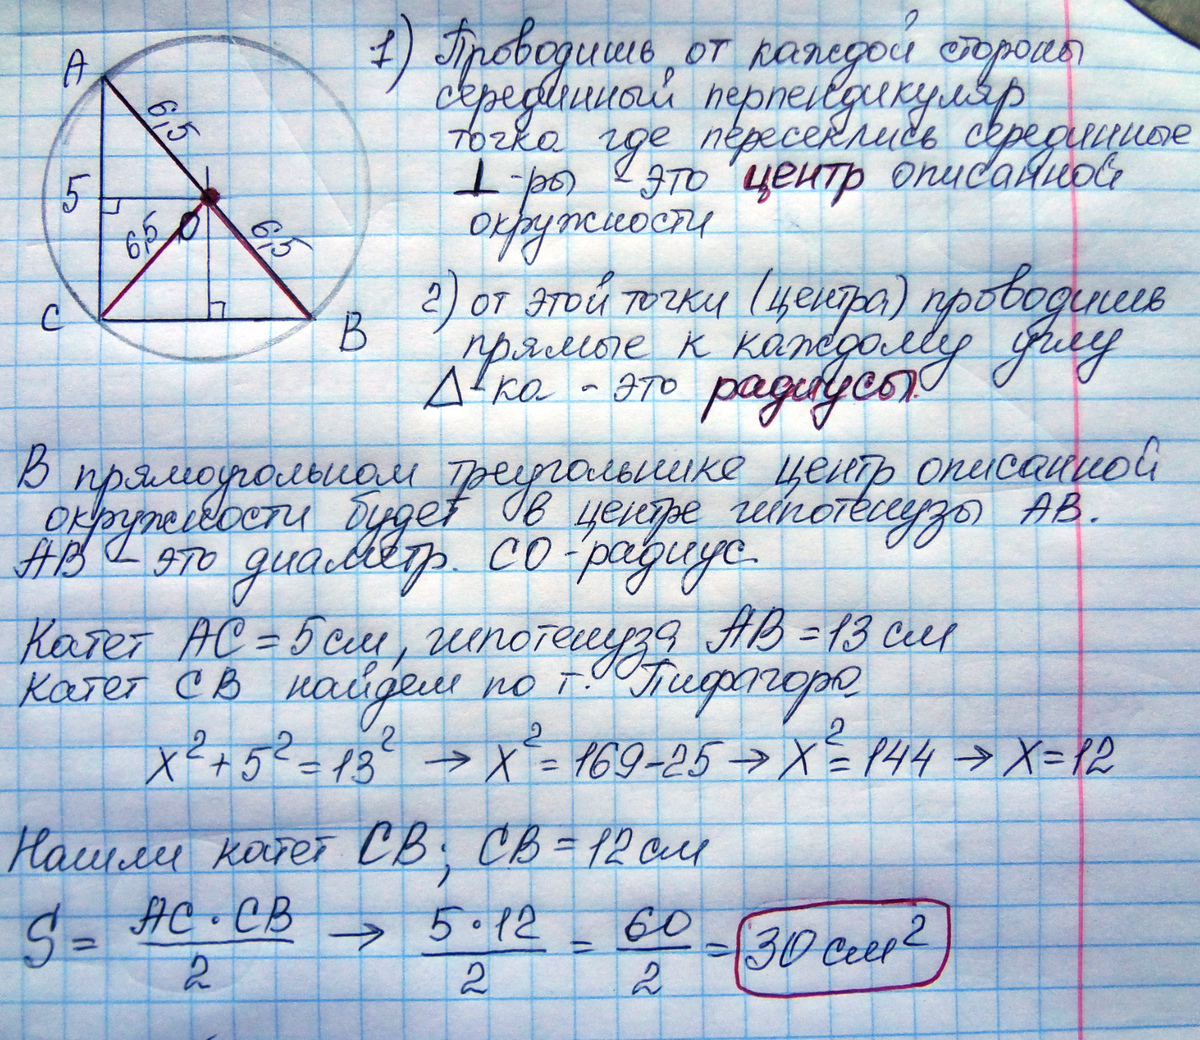 A
6,5
5
6,5
O
6,5
C
B
1) Проводишь от каждой стороны
серединный перпендикуляр
точка где пересеклись серединные
⊥-ры - это центр описанной
окружности
2) от этой точки (центра) проводишь
прямые к каждому углу
Δ-ка - это радиусы.
В прямоугольном треугольнике центр описанной
окружности будет в центре гипотенузы AB.
AB - это диаметр. CO - радиус.
Катет AC = 5 см, гипотенуза AB = 13 см
Катет CB найдем по т. Пифагора
x² + 5² = 13² → x² = 169 - 25 → x² = 144 → x = 12
Нашли катет CB; CB = 12 см
S = AC · CB / 2 → 5 · 12 / 2 = 60 / 2 = 30 см²